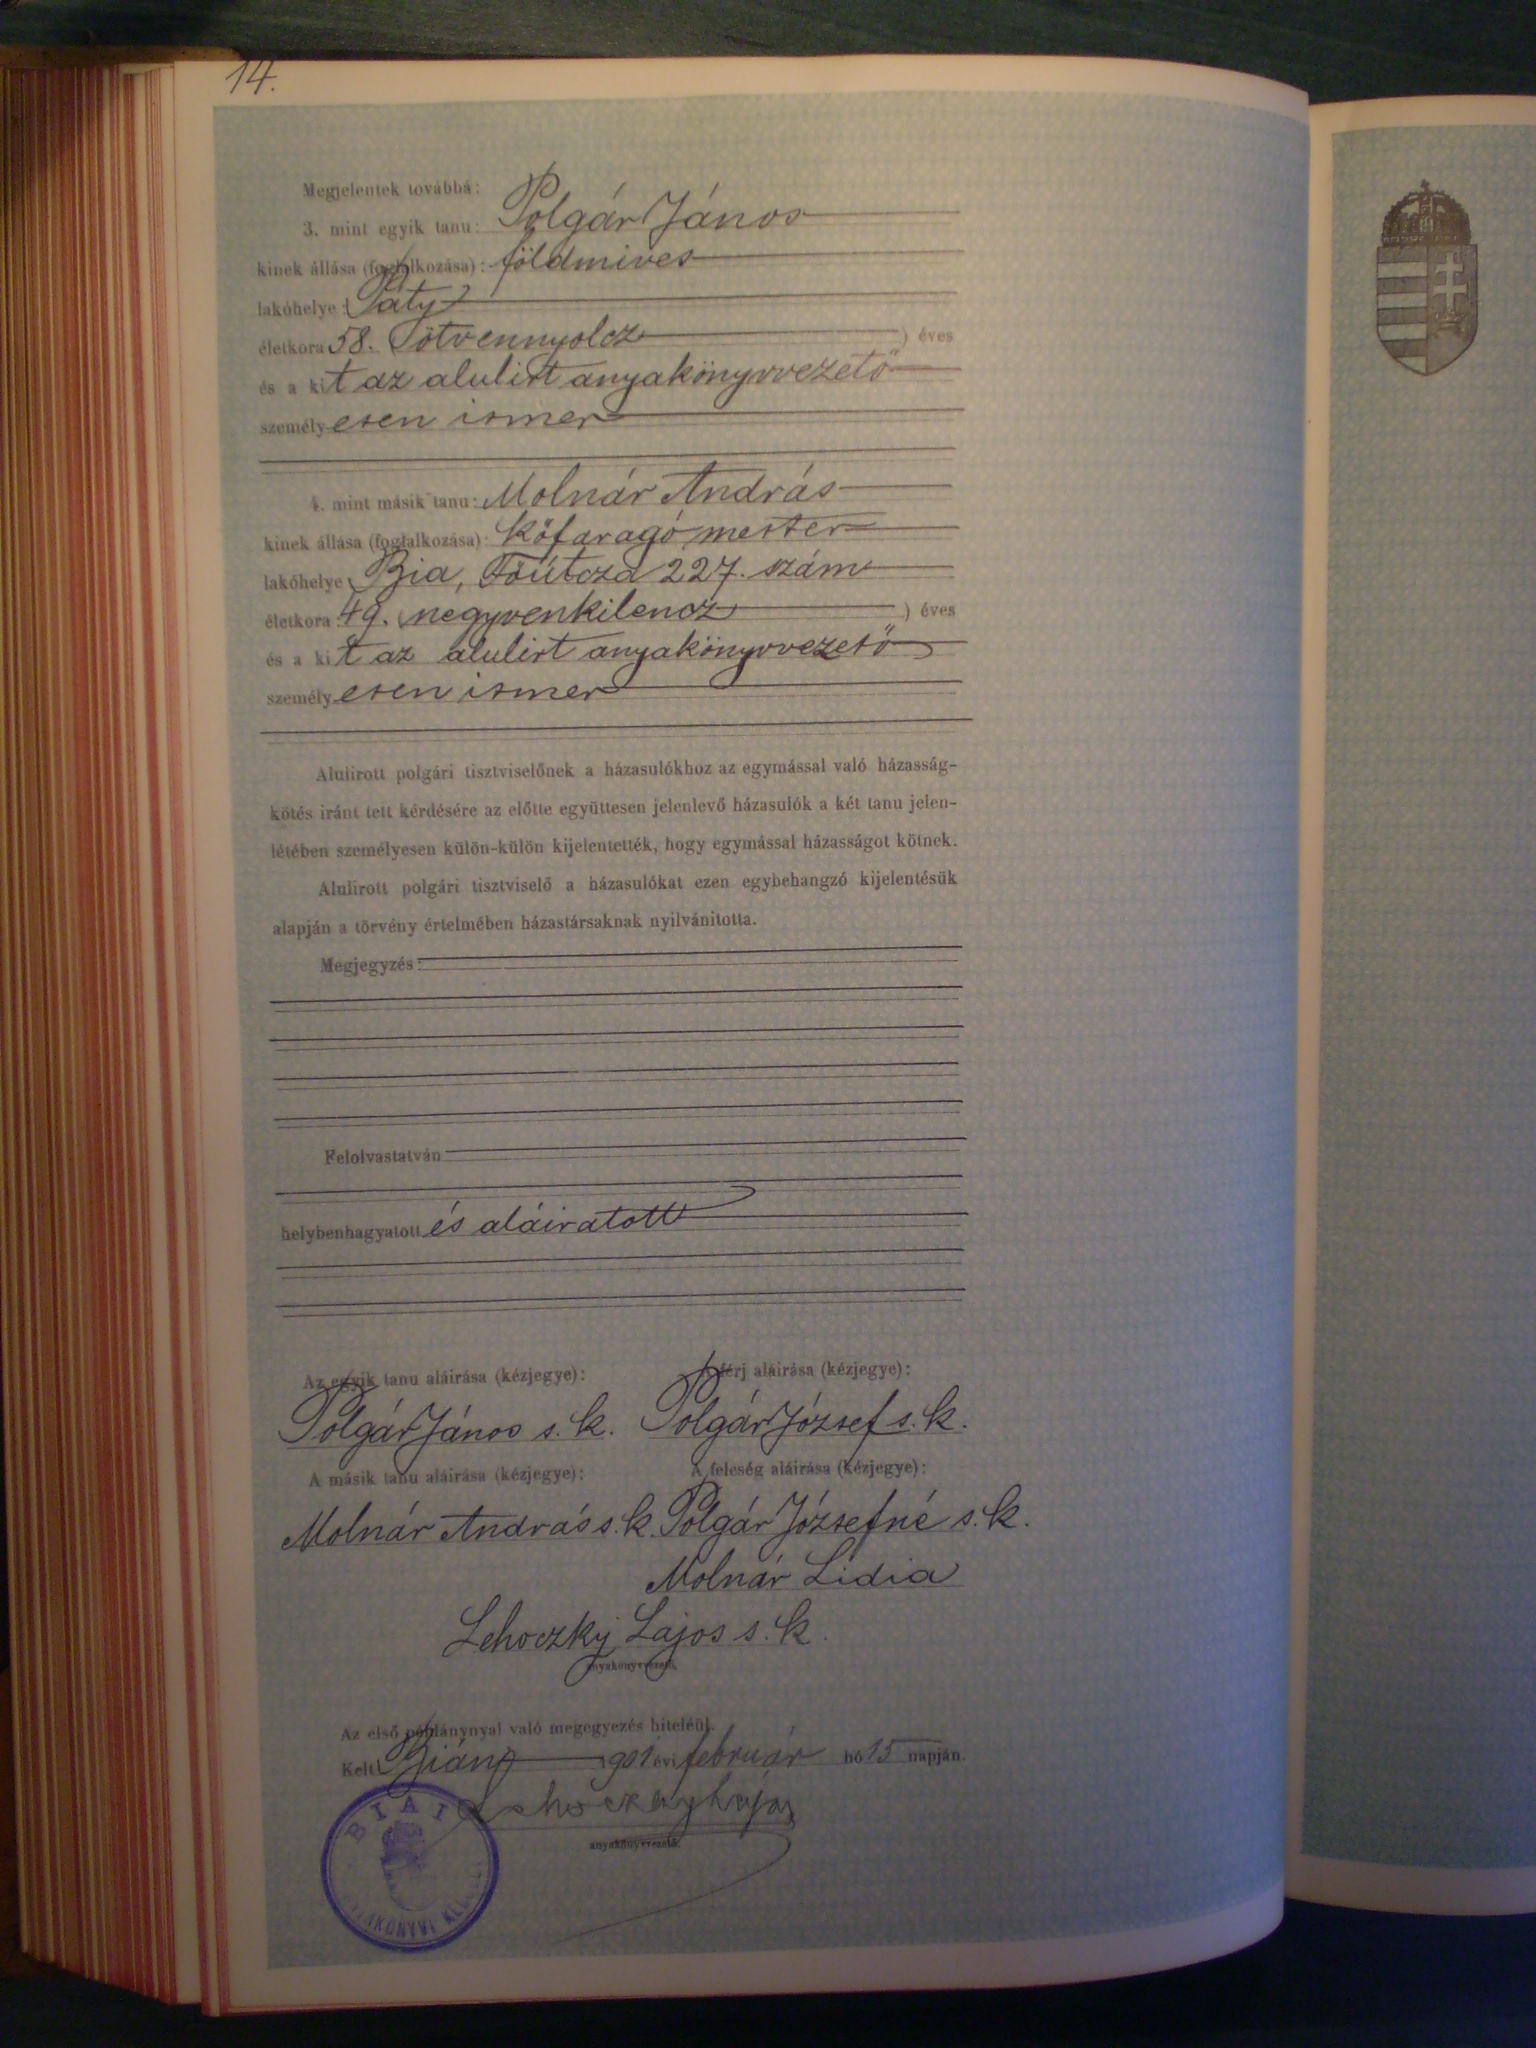 14.
Megjelentek továbbá:
3. mint egyik tanu: Polgár János
kinek állása (foglalkozása): földmives
lakóhelye: Páty
életkora 58. (ötvennyolcz) éves
és a kit az alulirt anyakönyvvezető
személyesen ismer
4. mint másik tanu: Molnár András
kinek állása (foglalkozása): kőfaragó mester
lakóhelye Bia, Főútcza 227. szám
életkora: 49. (negyvenkilencz) éves
és a kit az alulirt anyakönyvvezető
személyesen ismer
Alulirott polgári tisztviselőnek a házasulókhoz az egymással való házasság-
kötés iránt tett kérdésére az előtte együttesen jelenlevő házasulók a két tanu jelen-
létében személyesen külön-külön kijelentették, hogy egymással házasságot kötnek.
Alulirott polgári tisztviselő a házasulókat ezen egybehangzó kijelentésük
alapján a törvény értelmében házastársaknak nyilvánitotta.
Megjegyzés:
Felolvastatván
helybenhagyatott és aláiratott
Az egyik tanu aláirása (kézjegye): A férj aláirása (kézjegye):
Polgár János s. k. Polgár József s. k.
A másik tanu aláirása (kézjegye): A feleség aláirása (kézjegye):
Molnár András s. k. Polgár Józsefné s. k.
Molnár Lidia
Lehoczky Lajos s. k.
anyakönyvvezető.
Az első példánynyal való megegyezés hiteléül.
Kelt Bián 1901 évi február hó 15 napján.
Lehoczky Lajos
anyakönyvvezető.
BIAI